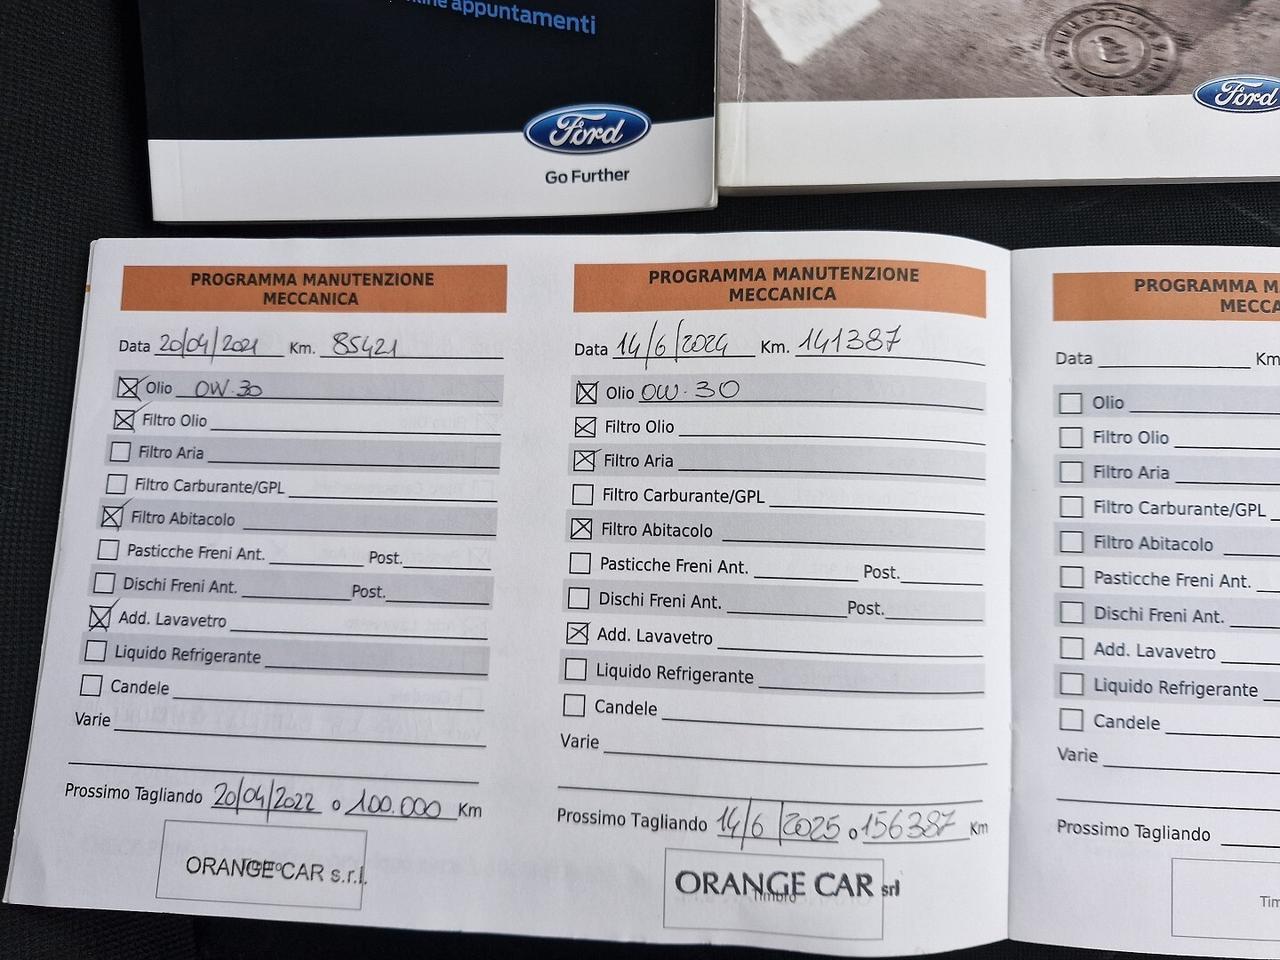 appuntamenti
Ford
Go Further
Ford
PROGRAMMA MANUTENZIONE
MECCANICA
Data 20/04/2021 Km. 85421
Olio 0W.30
Filtro Olio
Filtro Aria
Filtro Carburante/GPL
Filtro Abitacolo
Pasticche Freni Ant. Post.
Dischi Freni Ant. Post.
Add. Lavavetro
Liquido Refrigerante
Candele
Varie
Prossimo Tagliando 20/04/2022 o 100.000 Km
Timbro
ORANGE CAR s.r.l.
PROGRAMMA MANUTENZIONE
MECCANICA
Data 14/6/2024 Km. 141387
Olio 0W.30
Filtro Olio
Filtro Aria
Filtro Carburante/GPL
Filtro Abitacolo
Pasticche Freni Ant. Post.
Dischi Freni Ant. Post.
Add. Lavavetro
Liquido Refrigerante
Candele
Varie
Prossimo Tagliando 14/6/2025 o 156387 Km
ORANGE CAR srl
Timbro
PROGRAMMA M
MECCA
Data Km
Olio
Filtro Olio
Filtro Aria
Filtro Carburante/GPL
Filtro Abitacolo
Pasticche Freni Ant.
Dischi Freni Ant.
Add. Lavavetro
Liquido Refrigerante
Candele
Varie
Prossimo Tagliando
Tim